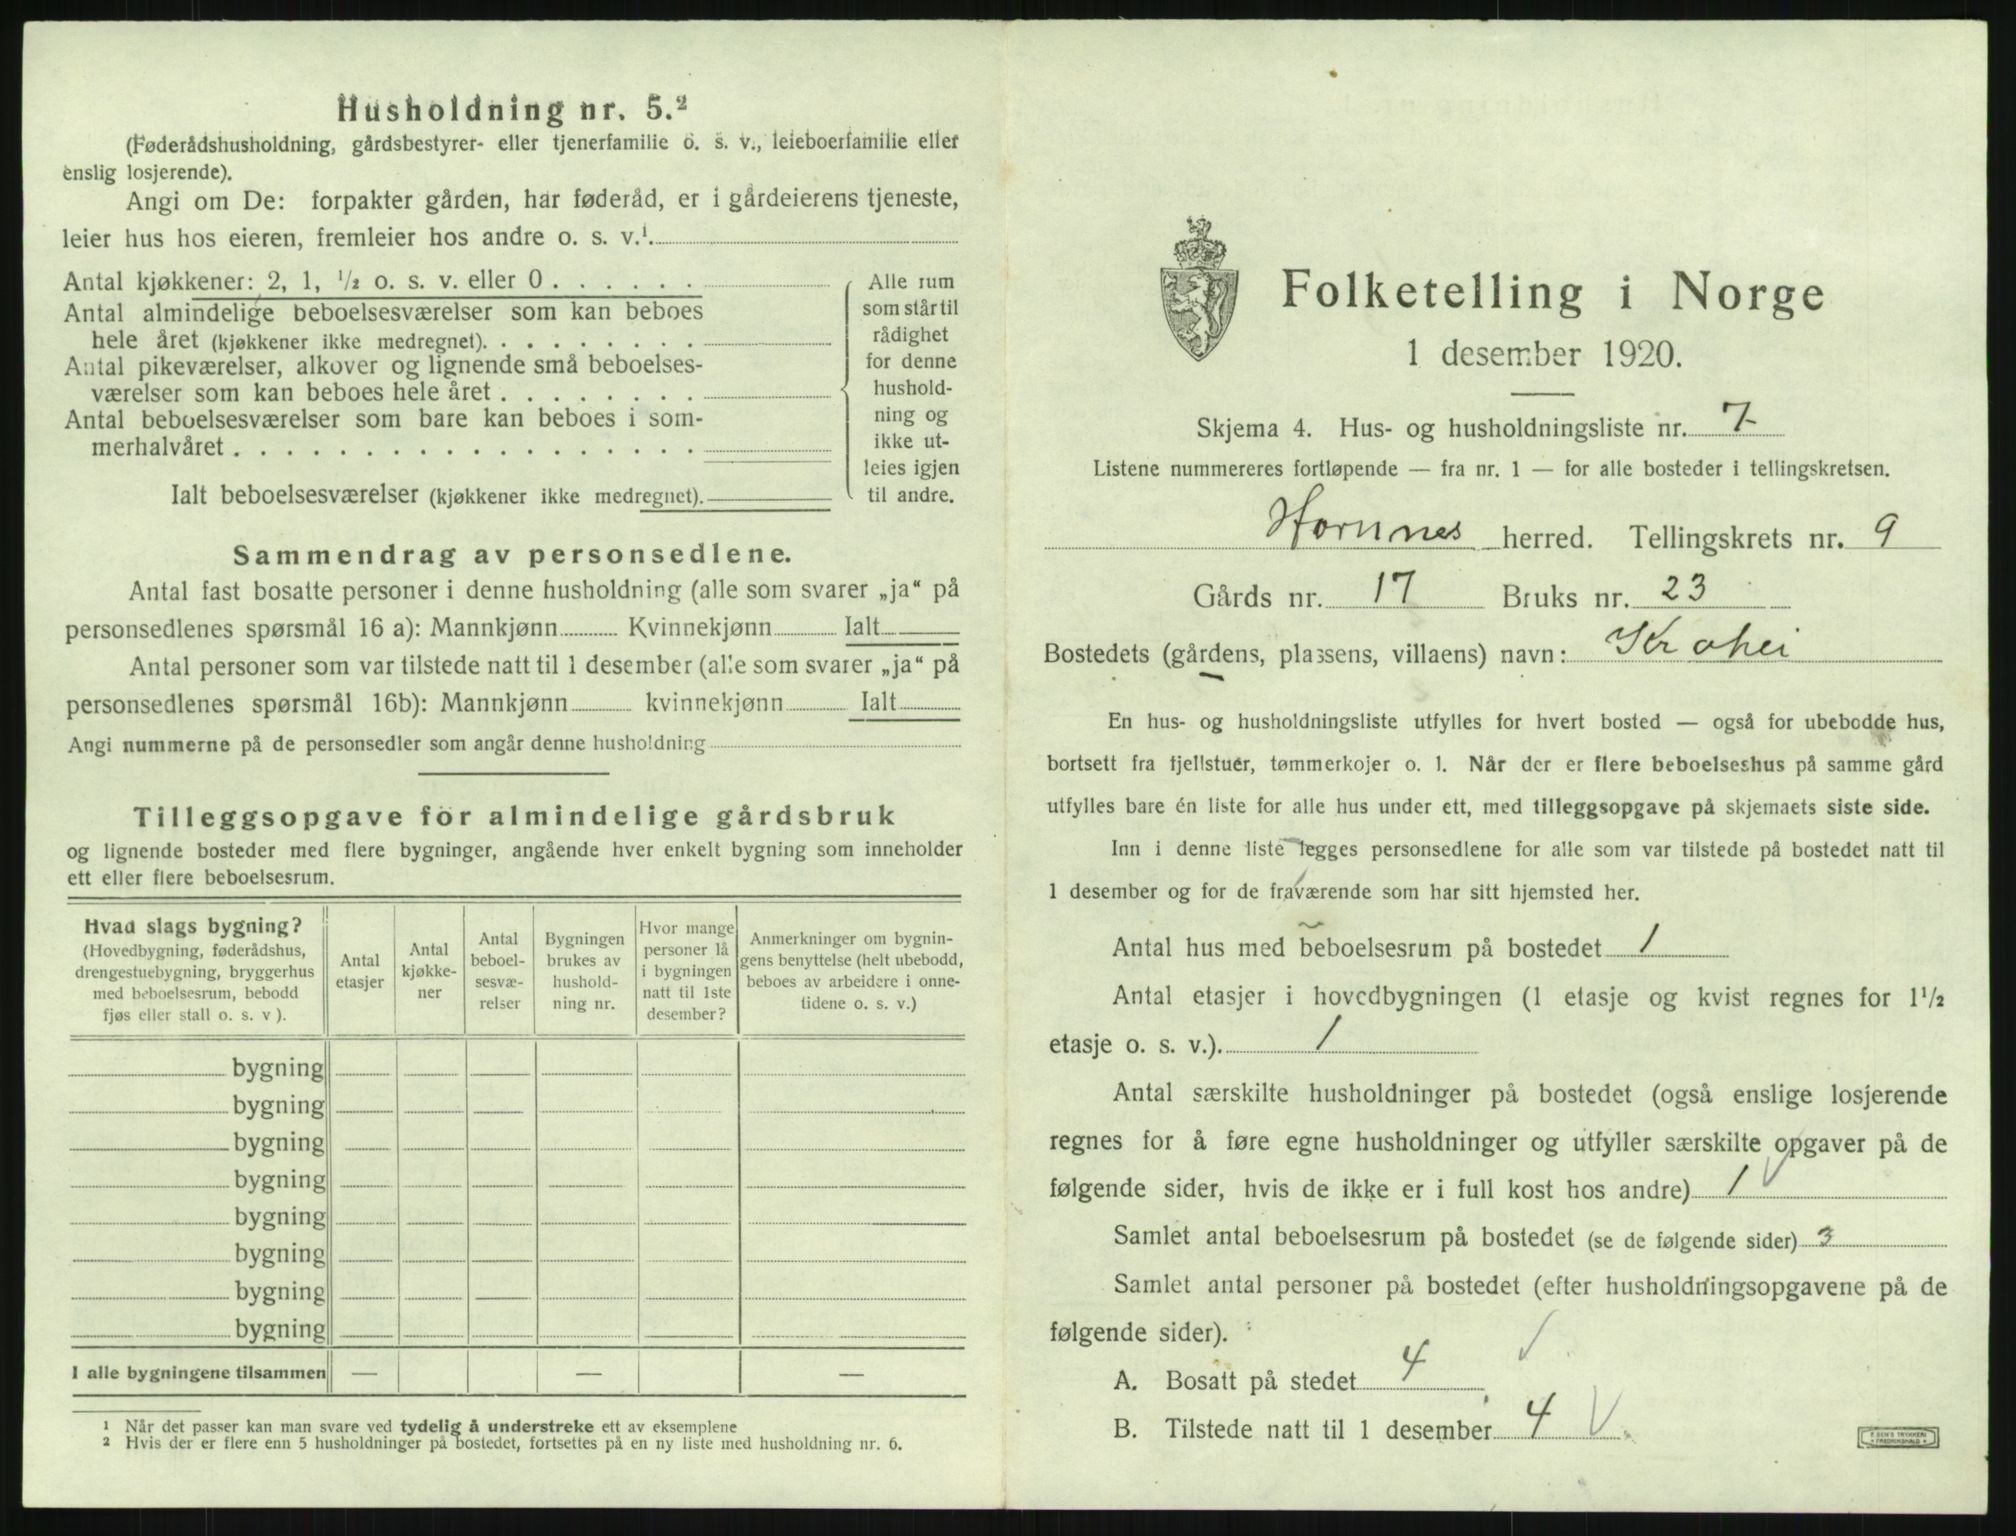 Husholdning nr. 5.²
(Føderådshusholdning, gårdsbestyrer- eller tjenerfamilie o. s. v., leieboerfamilie eller
enslig losjerende).
Angi om De: forpakter gården, har føderåd, er i gårdeierens tjeneste,
leier hus hos eieren, fremleier hos andre o. s. v.¹.
Antal kjøkkener: 2, 1, ¹/₂ o. s. v. eller 0 . . . . . .
Antal almindelige beboelsesværelser som kan beboes
hele året (kjøkkener ikke medregnet). . . . . . . . .
Antal pikeværelser, alkover og lignende små beboelses-
værelser som kan beboes hele året . . . . . . . .
Antal beboelsesværelser som bare kan beboes i som-
merhalvåret . . . . . . . . . . . . . . . . . .
Ialt beboelsesværelser (kjøkkener ikke medregnet).
Alle rum
som står til
rådighet
for denne
hushold-
ning og
ikke ut-
leies igjen
til andre.
Sammendrag av personsedlene.
Antal fast bosatte personer i denne husholdning (alle som svarer „ja“ på
personsedlenes spørsmål 16 a): Mannkjønn Kvinnekjønn Ialt
Antal personer som var tilstede natt til 1 desember (alle som svarer „ja“ på
personsedlenes spørsmål 16b): Mannkjønn kvinnekjønn Ialt
Angi nummerne på de personsedler som angår denne husholdning
Tilleggsopgave for almindelige gårdsbruk
og lignende bosteder med flere bygninger, angående hver enkelt bygning som inneholder
ett eller flere beboelsesrum.
Hvad slags bygning?
(Hovedbygning, føderådshus,
drengestuebygning, bryggerhus
med beboelsesrum, bebodd
fjøs eller stall o. s. v ).
Antal
etasjer
Antal
kjøkke-
ner
Antal
beboel-
sesvæ-
relser
Bygningen
brukes av
hushold-
ning nr.
Hvor mange
personer lå
i bygningen
natt til 1ste
desember?
Anmerkninger om bygnin-
gens benyttelse (helt ubebodd,
beboes av arbeidere i onne-
tidene o. s. v.)
bygning
bygning
bygning
bygning
bygning
bygning
bygning
bygning
I alle bygningene tilsammen — — —
¹ Når det passer kan man svare ved tydelig å understreke ett av eksemplene
² Hvis der er flere enn 5 husholdninger på bostedet, fortsettes på en ny liste med husholdning nr. 6.
Folketelling i Norge
1 desember 1920.
Skjema 4. Hus- og husholdningsliste nr. 7
Listene nummereres fortløpende — fra nr. 1 — for alle bosteder i tellingskretsen.
Hornnes herred. Tellingskrets nr. 9
Gårds nr. 17 Bruks nr. 23
Bostedets (gårdens, plassens, villaens) navn: Krohei
En hus- og husholdningsliste utfylles for hvert bosted — også for ubebodde hus,
bortsett fra fjellstuer, tømmerkojer o. l. Når der er flere beboelseshus på samme gård
utfylles bare én liste for alle hus under ett, med tilleggsopgave på skjemaets siste side.
Inn i denne liste legges personsedlene for alle som var tilstede på bostedet natt til
1 desember og for de fraværende som har sitt hjemsted her.
Antal hus med beboelsesrum på bostedet 1
Antal etasjer i hovedbygningen (1 etasje og kvist regnes for 1¹/₂
etasje o. s. v.). 1
Antal særskilte husholdninger på bostedet (også enslige losjerende
regnes for å føre egne husholdninger og utfyller særskilte opgaver på de
følgende sider, hvis de ikke er i full kost hos andre) 1
Samlet antal beboelsesrum på bostedet (se de følgende sider) 3
Samlet antal personer på bostedet (efter husholdningsopgavene på de
følgende sider).
A. Bosatt på stedet 4
B. Tilstede natt til 1 desember 4